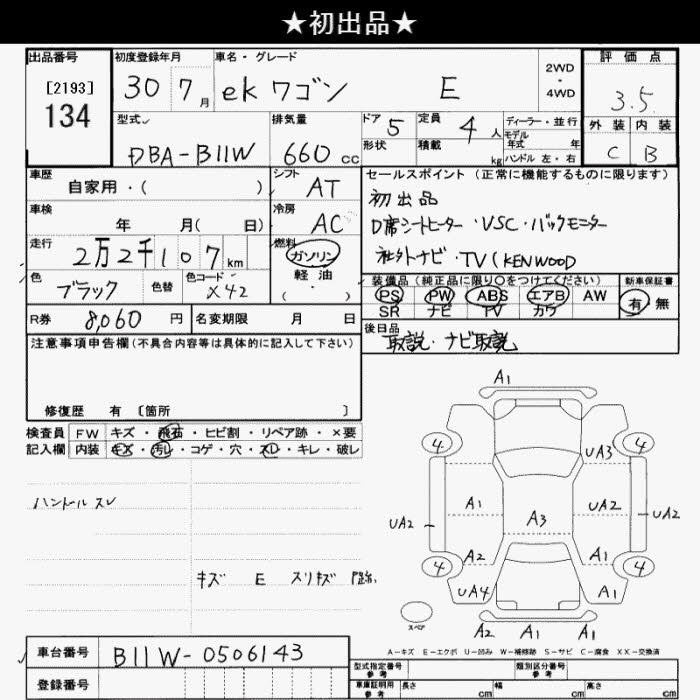 ★初出品★
出品番号 初度登録年月 車名・グレード 評価点
[2193] 30 7月 ekワゴン E 2WD・4WD 3.5
134
型式 排気量 ドア 5 定員 4人 ディーラー・並行 外装 内装
モデル年式 年
DBA-B11W 660cc 形状 積載 kg ハンドル 左・右 C B
車歴 シフト AT セールスポイント(正常に機能するものに限ります)
自家用・( )
初出品
車検 冷房 AC D席シートヒーター・VSC・バックモニター
年 月( 日)
走行 燃料 社外ナビ・TV(KENWOOD)
2万2千107km ガソリン
軽油
( )
色 色替 色コード 装備品(純正品に限り○をつけてください) 新車保証書
ブラック X42 PS PW ABS エアB AW 有 無
SR ナビ TV カワ
R券 8,060円 名変期限 月 日 後日品
取説・ナビ取説
注意事項申告欄(不具合内容等は具体的に記入して下さい)
修復歴 有 [箇所 ]
検査員 FW キズ・飛石・ヒビ割・リペア跡・×要
記入欄 内装 キズ・汚レ・コゲ・穴・スレ・キレ・破レ
ハンドル スレ
キズ E スリキズ
A1
4 4
UA3
A1 UA2
UA2 A3 UA2
A2 A1
4 4
UA4 A1
スペア
A2 A1 A1
A-キズ E-エクボ U-凹み W-補修跡 S-サビ C-腐食 XX-交換済
車台番号 B11W-0506143
型式指定番号 参考 類別区分番号 参考
登録番号 車庫証明用 参考 長さ cm 幅 cm 高さ cm